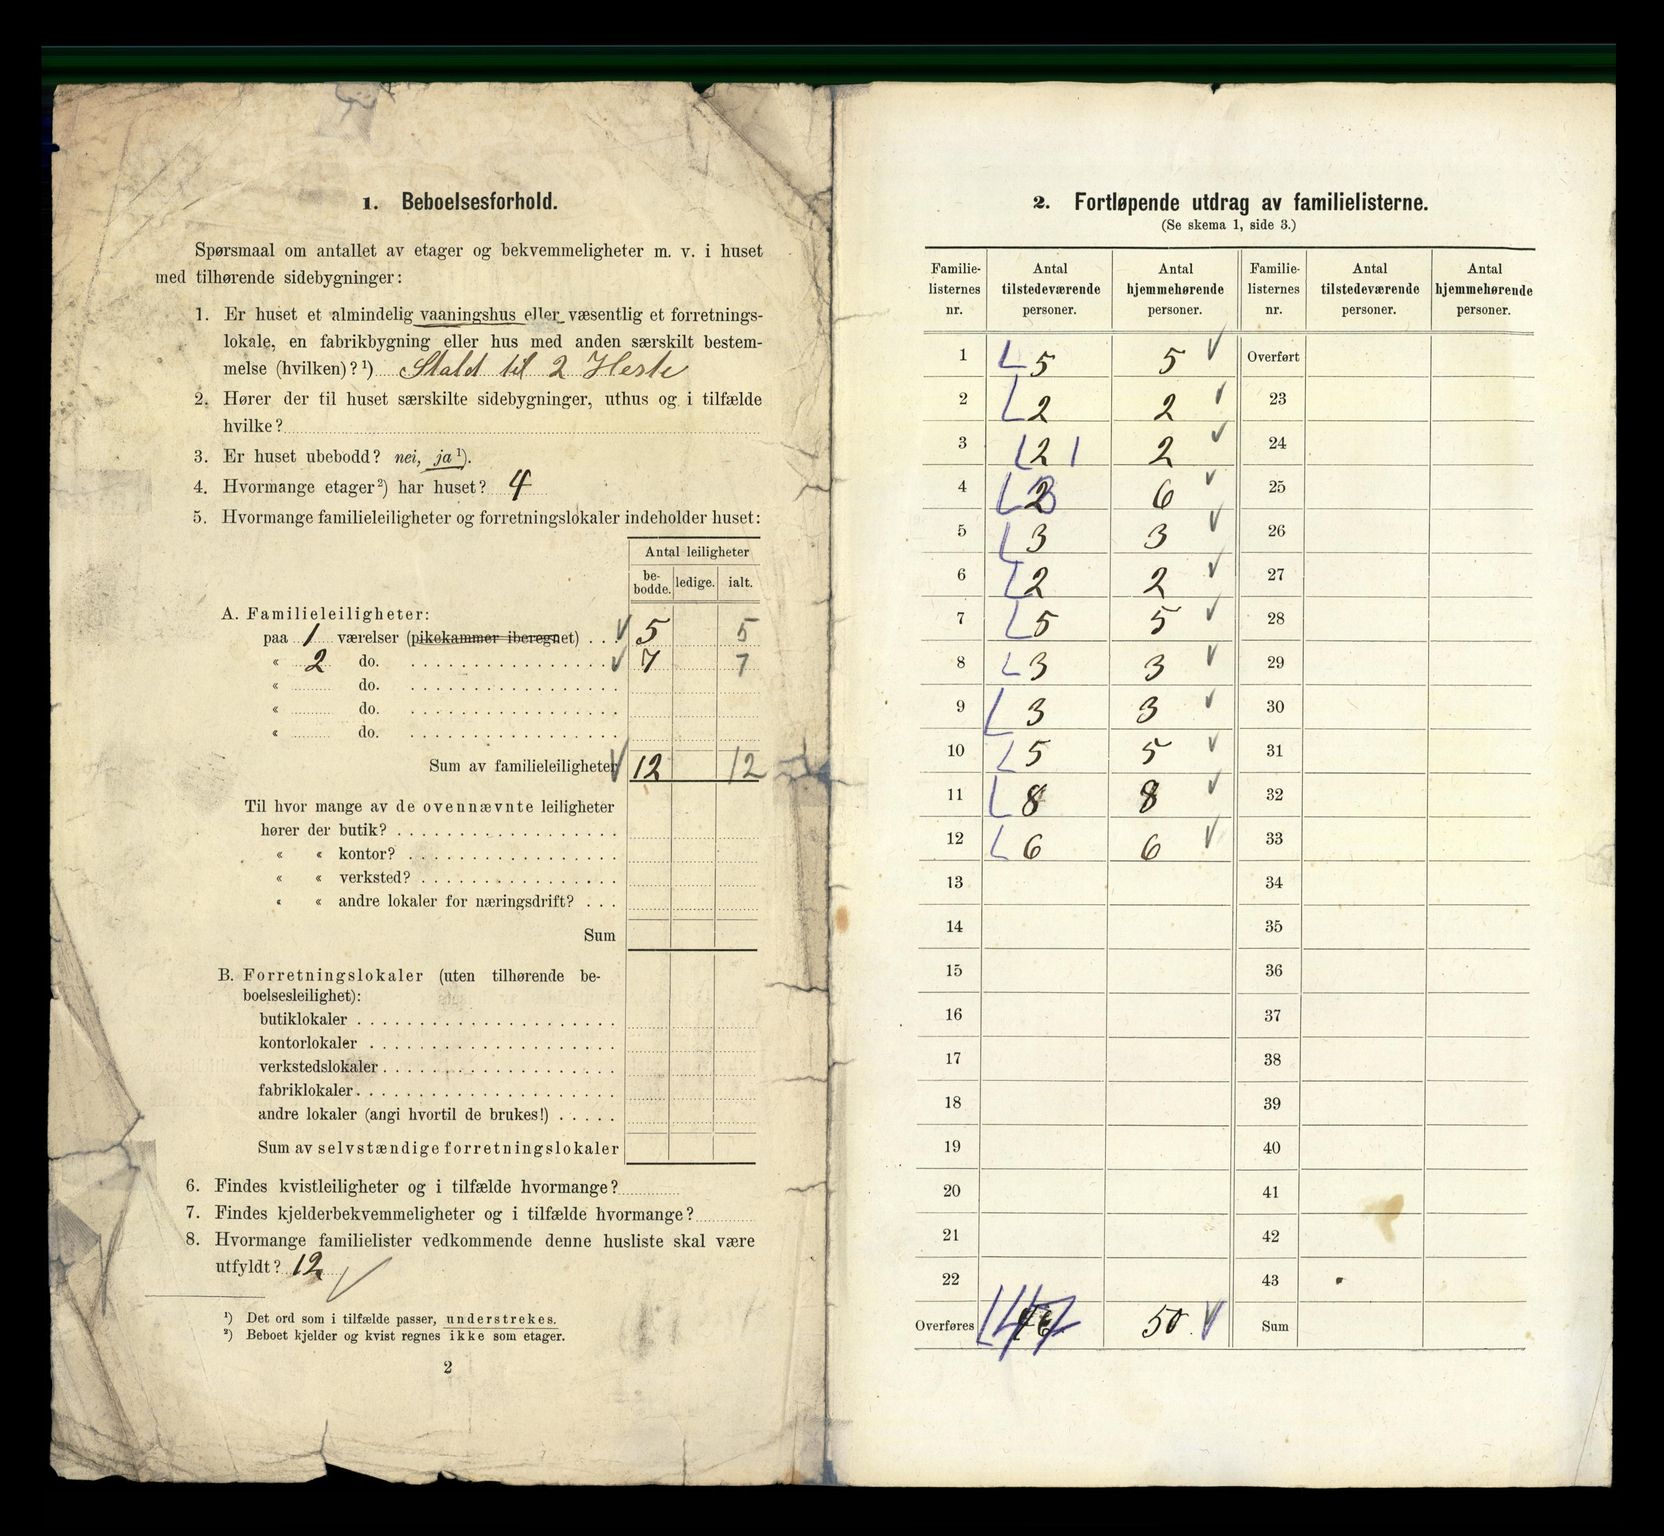 1. Beboelsesforhold.
Spørsmaal om antallet av etager og bekvemmeligheter m. v. i huset
med tilhørende sidebygninger:
1. Er huset et almindelig vaaningshus eller væsentlig et forretnings-
lokale, en fabrikbygning eller hus med anden særskilt bestem-
melse (hvilken)? ¹) Stald til 2 Heste
2. Hører der til huset særskilte sidebygninger, uthus og i tilfælde
hvilke?
3. Er huset ubebodd? nei, ja ¹).
4. Hvormange etager ²) har huset? 4
5. Hvormange familieleiligheter og forretningslokaler indeholder huset:
Antal leiligheter
be-
bodde. ledige. ialt.
A. Familieleiligheter:
paa 1 værelser (pikekammer iberegnet) . . . 5 5
« 2 do. 7 7
« do.
« do.
« do.
Sum av familieleiligheter 12 12
Til hvor mange av de ovennævnte leiligheter
hører der butik?
« « kontor?
« « verksted?
« « andre lokaler for næringsdrift? . . .
Sum
B. Forretningslokaler (uten tilhørende be-
boelsesleilighet):
butiklokaler
kontorlokaler
verkstedslokaler
fabriklokaler
andre lokaler (angi hvortil de brukes!)
Sum av selvstændige forretningslokaler
6. Findes kvistleiligheter og i tilfælde hvormange?
7. Findes kjelderbekvemmeligheter og i tilfælde hvormange?
8. Hvormange familielister vedkommende denne husliste skal være
utfyldt? 12
¹) Det ord som i tilfælde passer, understrekes.
²) Beboet kjelder og kvist regnes ikke som etager.
2
2. Fortløpende utdrag av familielisterne.
(Se skema 1, side 3.)
Familie-
listernes
nr.
Antal
tilstedeværende
personer.
Antal
hjemmehørende
personer.
Familie-
listernes
nr.
Antal
tilstedeværende
personer.
Antal
hjemmehørende
personer.
1 5 5 Overført
2 2 2 23
3 2 1 2 24
4 6 25
5 3 3 26
6 2 2 27
7 5 5 28
8 3 3 29
9 3 3 30
10 5 5 31
11 8 8 32
12 6 6 33
13 34
14 35
15 36
16 37
17 38
18 39
19 40
20 41
21 42
22 43
Overføres 47 50 Sum